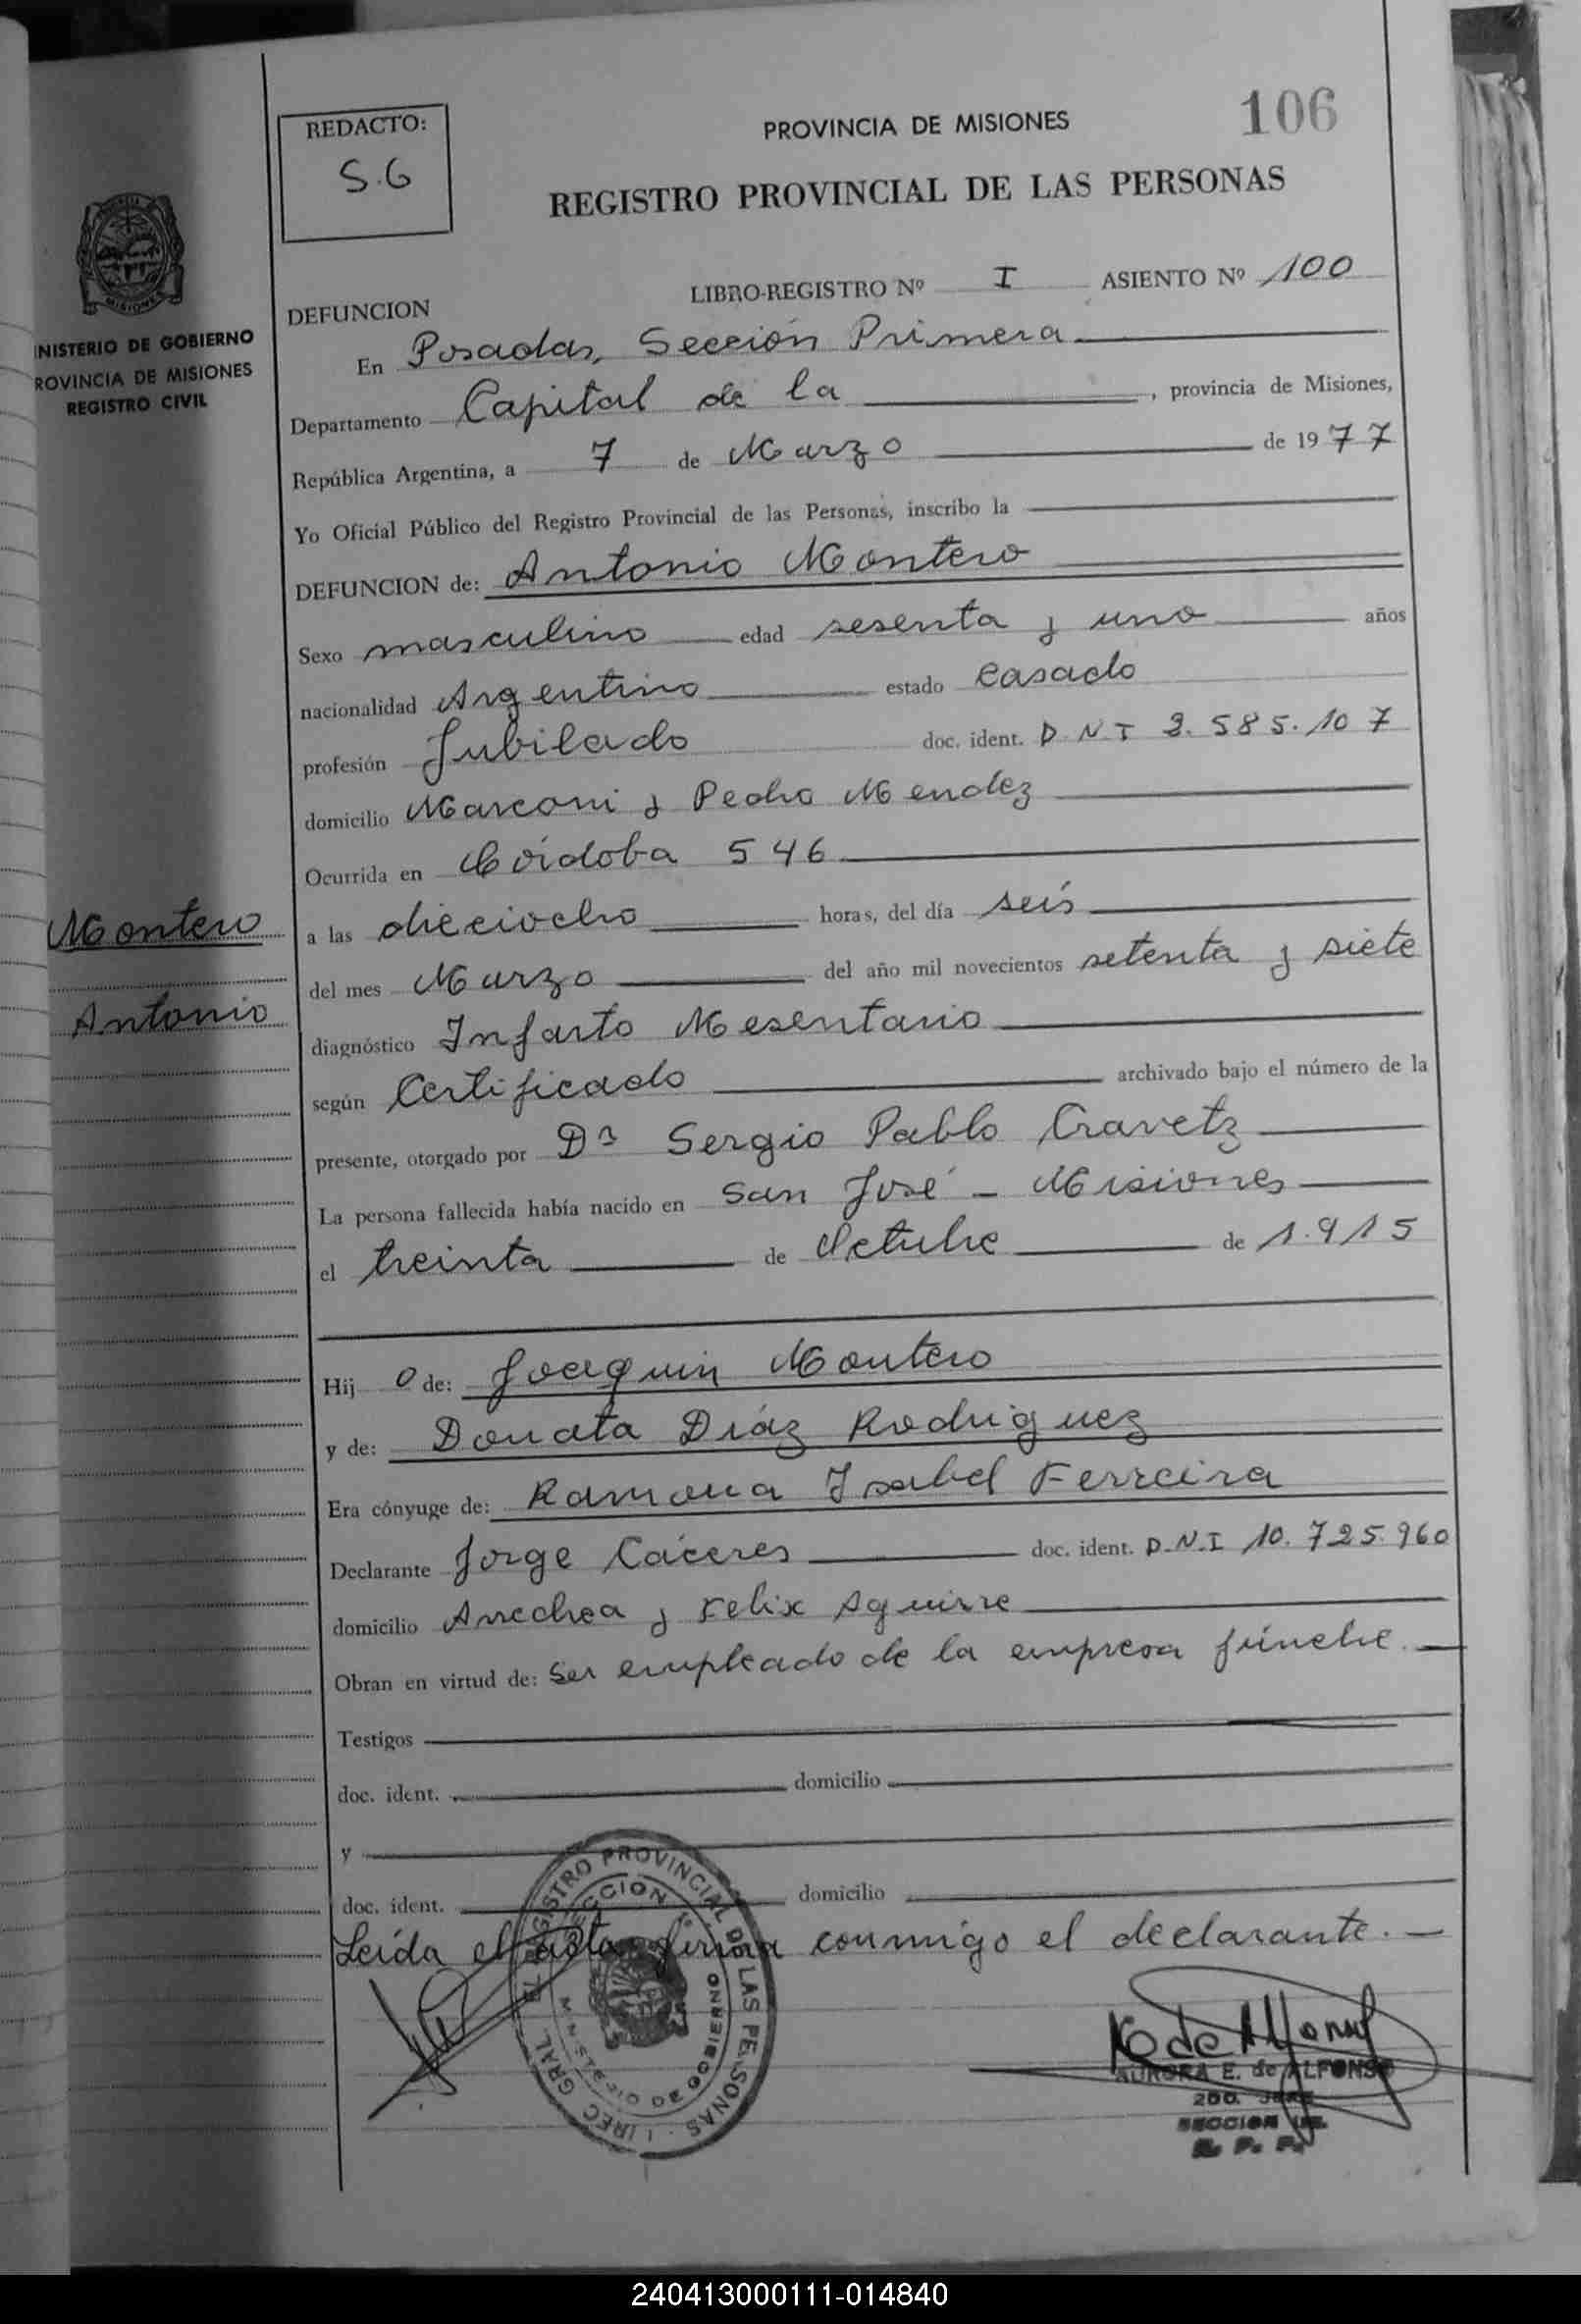 REDACTO:
S.G
PROVINCIA DE MISIONES
106
REGISTRO PROVINCIAL DE LAS PERSONAS
MISIONES
INISTERIO DE GOBIERNO
ROVINCIA DE MISIONES
REGISTRO CIVIL
DEFUNCION LIBRO-REGISTRO Nº I ASIENTO Nº 100
En Posadas, Sección Primera
Departamento Capital de la , provincia de Misiones,
República Argentina, a 7 de Marzo de 1977
Yo Oficial Público del Registro Provincial de las Personas, inscribo la
DEFUNCION de: Antonio Montero
Sexo masculino edad sesenta y uno años
nacionalidad Argentino estado Casado
profesión Jubilado doc. ident. D.N.I 2.585.107
domicilio Marconi y Pedro Mendez
Ocurrida en Córdoba 546
a las dieciocho horas, del día seis
del mes Marzo del año mil novecientos setenta y siete
diagnóstico Infarto Mesentario
según Certificado archivado bajo el número de la
presente, otorgado por Dr Sergio Pablo Cravetz
La persona fallecida había nacido en San José - Misiones
el treinta de Octubre de 1.915
Montero
Antonio
Hij o de: Joaquin Montero
y de: Donata Diáz Rodriguez
Era cónyuge de: Ramona Isabel Ferreira
Declarante Jorge Cáceres doc. ident. D.N.I 10.725.960
domicilio Arrechea y Felix Aguirre
Obran en virtud de: Ser empleado de la empresa fúnebre.
Testigos
doc. ident. domicilio
y
doc. ident. domicilio
Leída el acta firma conmigo el declarante.
REGISTRO PROVINCIAL DE LAS PERSONAS
SECCION
MINISTERIO DE GOBIERNO
DIREC. GRAL
AURORA E. de ALFONSO
2DO. JEFE
SECCION
R. P. P.
240413000111-014840